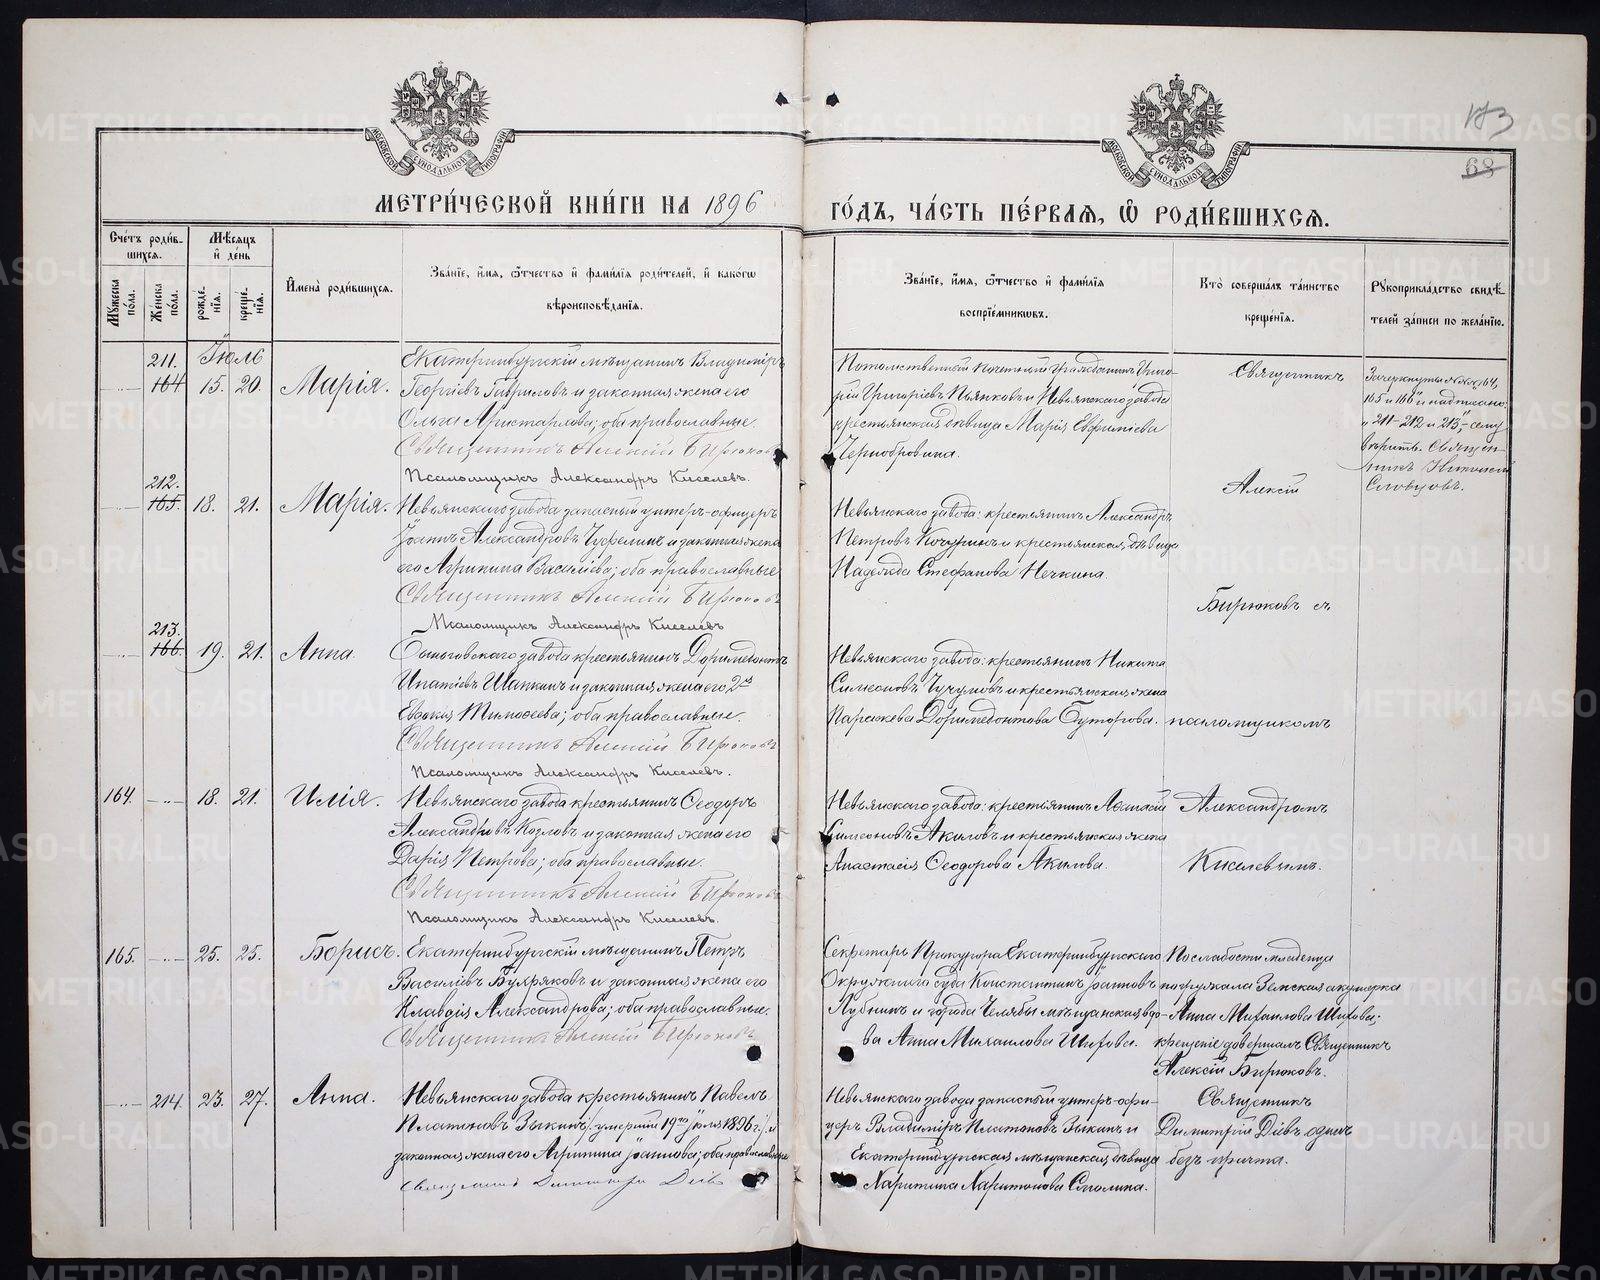 173
68
МОСКОВСКОЙ СѴНОДАЛЬНОЙ ТИПОГРАФІИ
МОСКОВСКОЙ СѴНОДАЛЬНОЙ ТИПОГРАФІИ
МЕТРИ́ЧЕСКОЙ КНИ́ГИ НА 1896
ГО́ДЪ, ЧА́СТЬ ПЕ́РВАѦ, Ѡ҆ РОДИ́ВШИХСѦ.
Сче́тъ роди́в-
шихсѧ.
Мꙋ́жеска по́ла.
Же́нска по́ла.
Мѣ́сѧцъ и҆ де́нь
рожде́-нїѧ.
креще́-нїѧ.
И҆мена̀ роди́вшихсѧ.
Зва́нїе, и҆́мѧ, ѻ҆́тчество и҆ фами́лїѧ роди́телей, и҆ како́гѡ
вѣроисповѣ́данїѧ.
Зва́нїе, и҆́мѧ, ѻ҆́тчество и҆ фами́лїѧ
воспрїе́мникѡвъ.
Кто̀ соверша́лъ та́инство
креще́нїѧ.
Рꙋкоприкла́дство свидѣ́-
телей за́писи по жела́нїю.
Іюль
211.
164 15. 20. Марія.
Екатеринбургскій мѣщанинъ Владиміръ
Георгіевъ Гавриловъ и законная жена его
Ольга Аристархова; оба православные.
Священникъ Алексій Бирюковъ
Псаломщикъ Александръ Киселевъ.
Потомственный почетный гражданинъ Григо-
рій Григоріевъ Пьянковъ и Невьянскаго завода
крестьянская дѣвица Марія Евфиміева
Чернобровина.
Священникъ
Зачеркнуты №№ 164,
165 и 166 и надписано:
"211-212 и 213",- сему
вѣрить. Священ-
никъ Николай
Словцовъ.
212.
165. 18. 21. Марія.
Невьянскаго завода запасный унтеръ-офицеръ
Іоаннъ Александровъ и законная жена
его Агрипина Василіева; оба православные
Священникъ Алексій Бирюковъ
Псаломщикъ Александръ Киселевъ
Невьянскаго завода: крестьянинъ Александръ
Петровъ и крестьянская дѣвица
Надежда Стефанова Нечкина.
Алексій
Бирюковъ съ
213.
166. 19. 21. Анна.
Быньговскаго завода крестьянинъ Доримедонтъ
Ипатіевъ Шапкинъ и законная жена его 2
Евдокія Тимоѳеева; оба православные.
Священникъ Алексій Бирюковъ
Псаломщикъ Александръ Киселевъ.
Невьянскаго завода: крестьянинъ Никита
Симеоновъ Чучумовъ и крестьянская жена
Параскева Доримедонтова Буторова.
псаломщикомъ
164. 18. 21. Илія.
Невьянскаго завода крестьянинъ Ѳеодоръ
Александровъ Козловъ и законная жена его
Дарія Петрова; оба православные.
Священникъ Алексій Бирюковъ
Псаломщикъ Александръ Киселевъ.
Невьянскаго завода: крестьянинъ Аѳанасій
Симеоновъ Акиловъ и крестьянская жена
Анастасія Ѳеодорова Акилова.
Александромъ
Киселевымъ.
165. 25. 25. Борисъ.
Екатеринбургскій мѣщанинъ Петръ
Василіевъ Бухряковъ и законная жена его
Клавдія Александрова; оба православные.
Священникъ Алексій Бирюковъ
Секретарь Прокурора Екатеринбургскаго
Окружнаго суда Константинъ Іоанновъ
Лубнинъ и города Челябы мѣщанская вдо-
ва Анна Михаилова Шихова.
По слабости младенца
погружала Земская акушерка
Анна Михаилова Шихова;
крещеніе довершалъ Священникъ
Алексій Бирюковъ.
214. 23. 27. Анна.
Невьянскаго завода крестьянинъ Павелъ
Платоновъ Зыкинъ /: умершій 19го іюля 1896 г:/ и
законная жена его Агрипина Іоаннова; оба православные
Священникъ Димитрій Діевъ
Невьянскаго завода запасный унтеръ-офи-
церъ Владиміръ Платоновъ Зыкинъ и
Екатеринбургская мѣщанская дѣвица
Харитина Харитонова.
Священникъ
Димитрій Діевъ одинъ
безъ причта.
METRIKI.GASO-URAL.RU